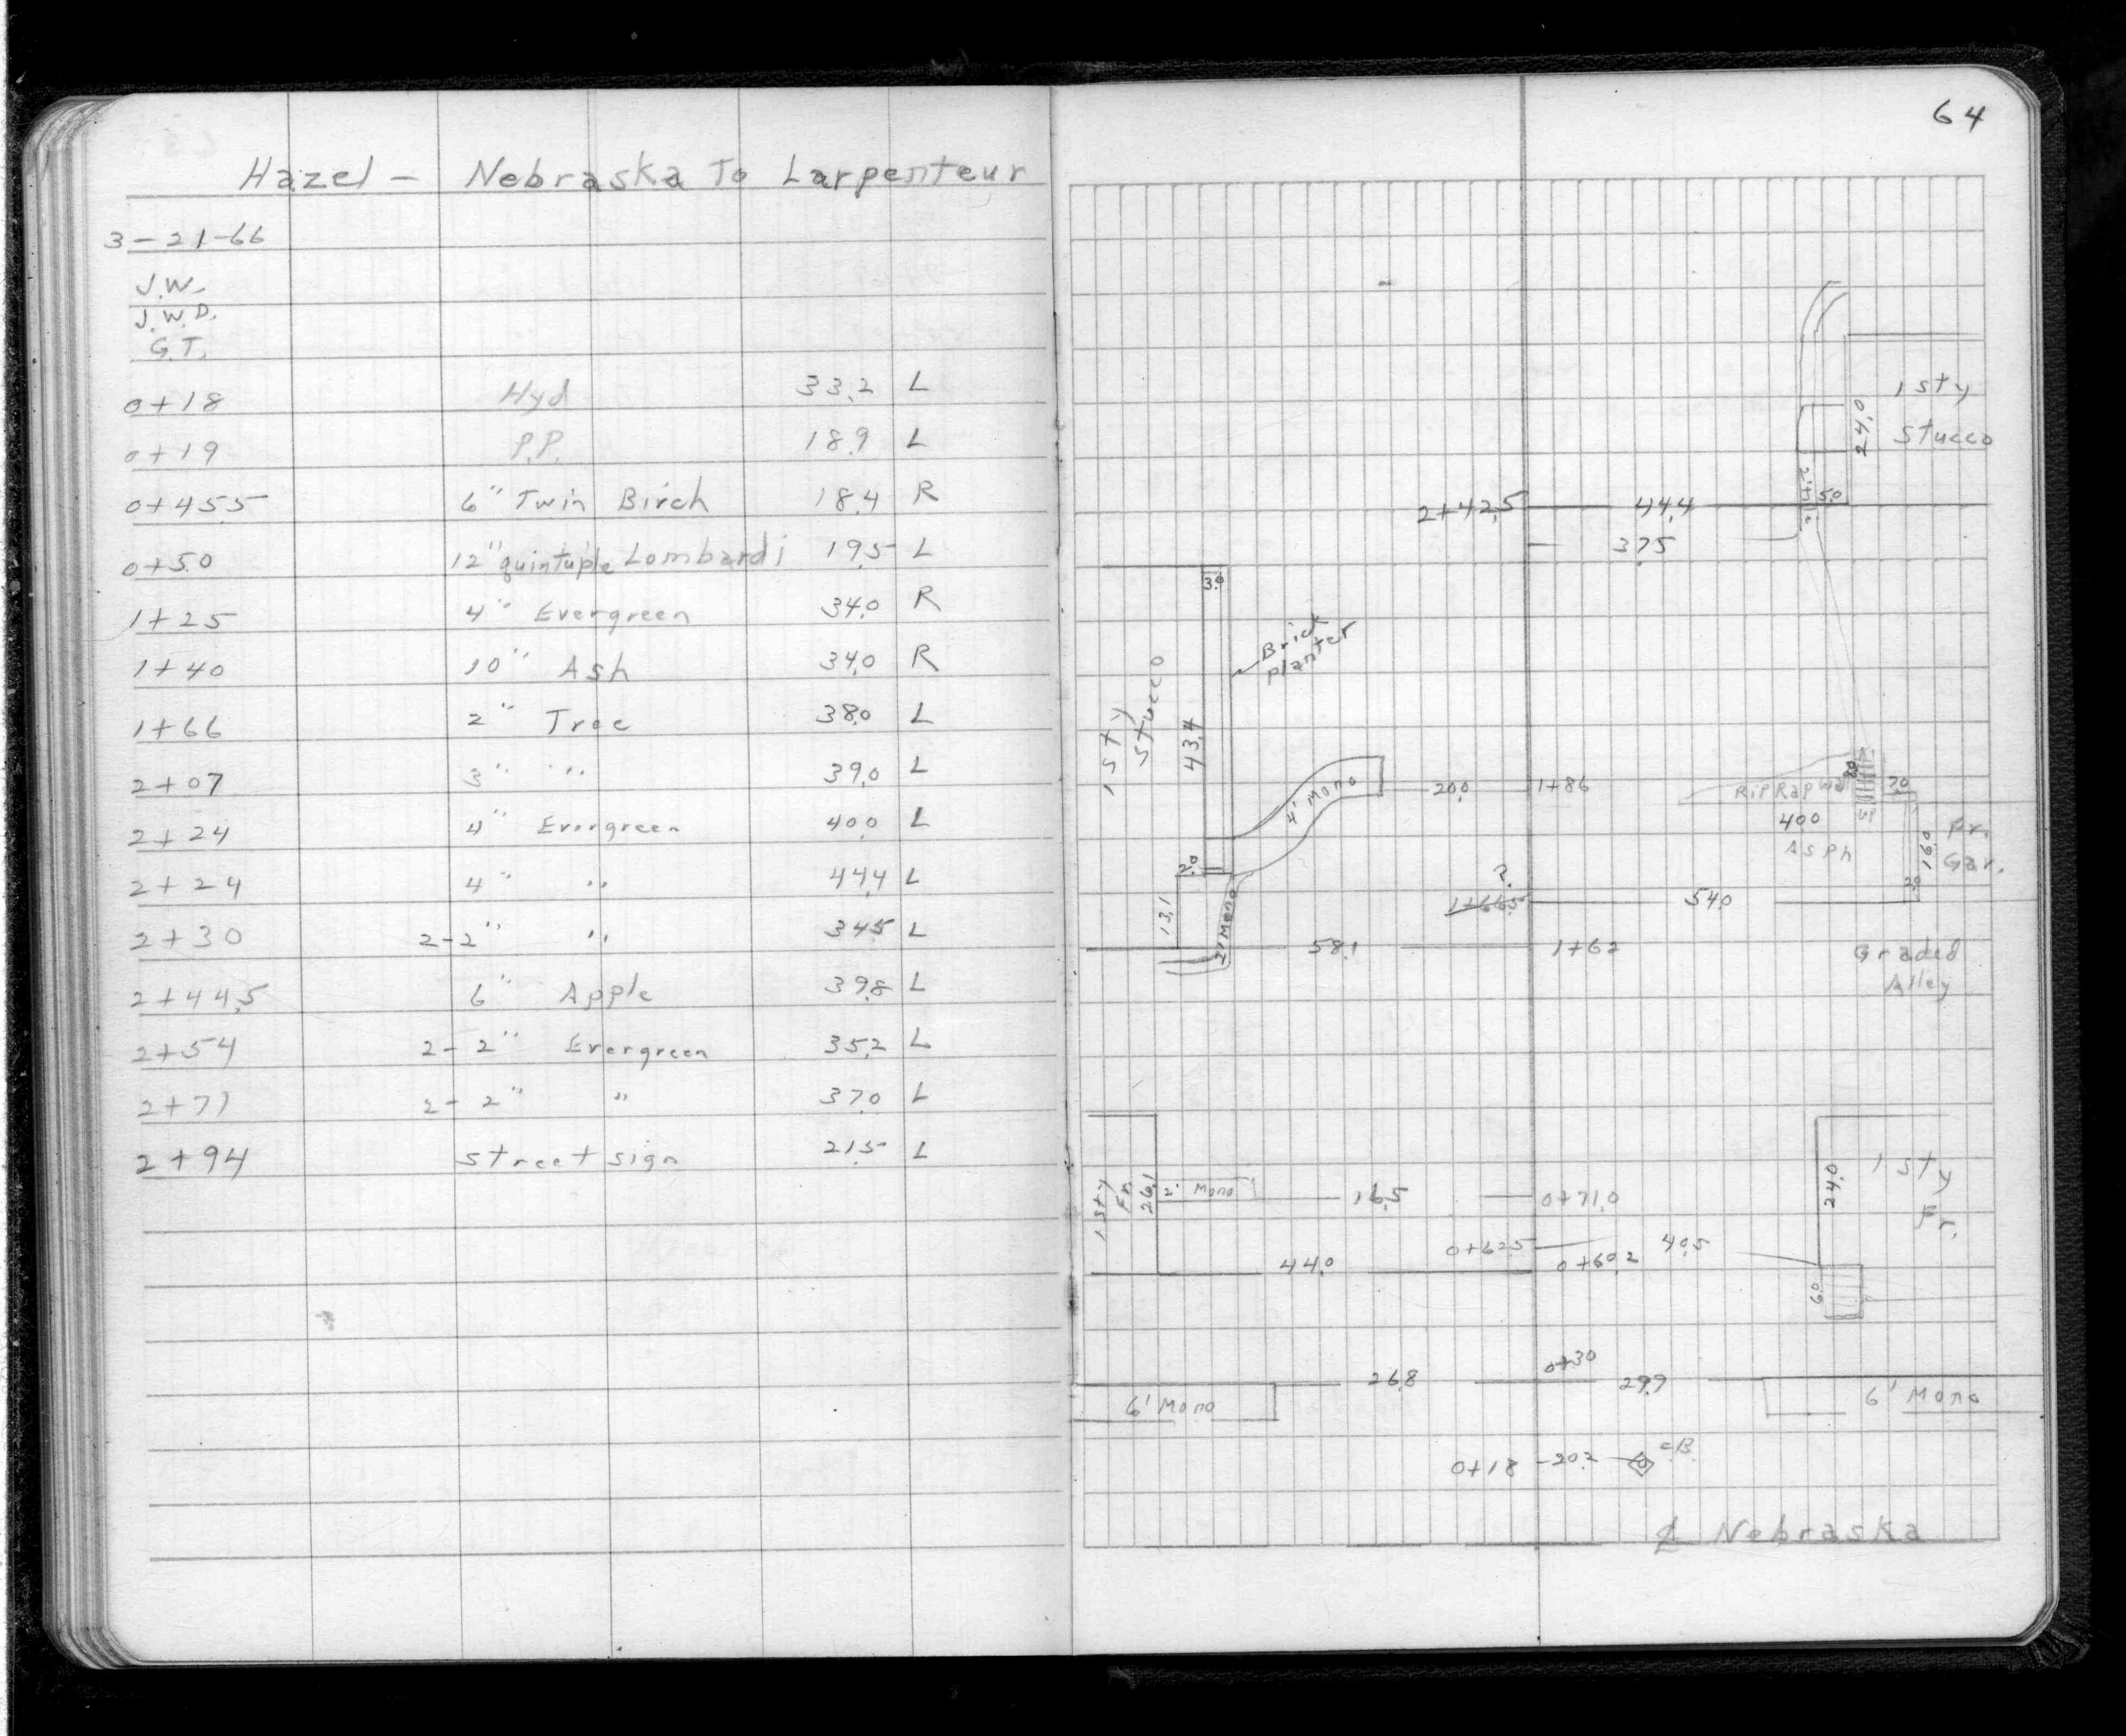 64
Hazel - Nebraska To Larpenteur
3-21-66
J.W.
J.W.D.
G.T.
0+18 Hyd 33.2 L
0+19 P.P. 18.9 L
0+45.5 6" Twin Birch 18.4 R
0+50 12" quintuple Lombardi 19.5 L
1+25 4" Evergreen 34.0 R
1+40 10" Ash 34.0 R
1+66 2" Tree 38.0 L
2+07 3" " 39.0 L
2+24 4" Evergreen 40.0 L
2+24 4" " 44.4 L
2+30 2-2" " 34.5 L
2+44.5 6" Apple 39.8 L
2+54 2-2" Evergreen 35.2 L
2+71 2-2" " 37.0 L
2+94 street sign 21.5 L
1 sty
Stucco
24.0
2+42.5 44.4 5.0
37.5
3.0
Brick
planter
1 sty
stucco
43.4
4' Mono 20.0 1+86
Rip Rap Wall 7.0
40.0 UP
Asph
16.0
Fr.
Gar.
2.0
?
1+66.5 54.0
2.0
13.1
2' Mono
58.1 1+62
Graded
Alley
1 sty
Fr.
26.1
2' Mono 16.5 0+71.0
24.0
1 sty
Fr.
0+62.5 40.5
44.0 0+60.2
6.0
0+30
26.8 29.9
6' Mono 6' Mono
0+18 -20.2 CB
℄ Nebraska